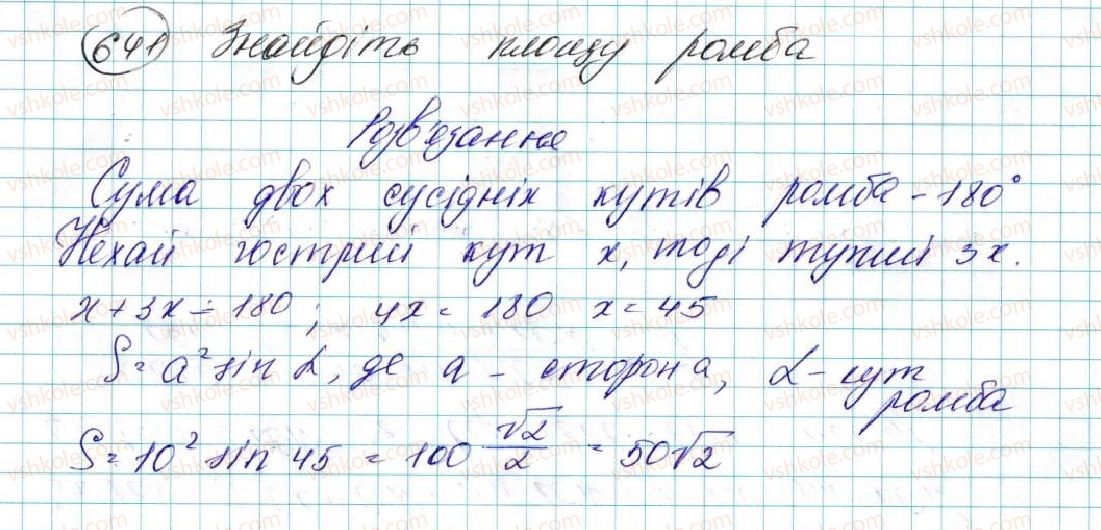 641 Знайдіть площу ромба
Розв'язання
Сума двох сусідніх кутів ромба - 180°
Нехай гострий кут x, тоді тупий 3x.
x + 3x = 180; 4x = 180 x = 45
S = a² sin α, де a - сторона, α - кут
ромба
S = 10² sin 45 = 100 √2/2 = 50√2
vshkole.com